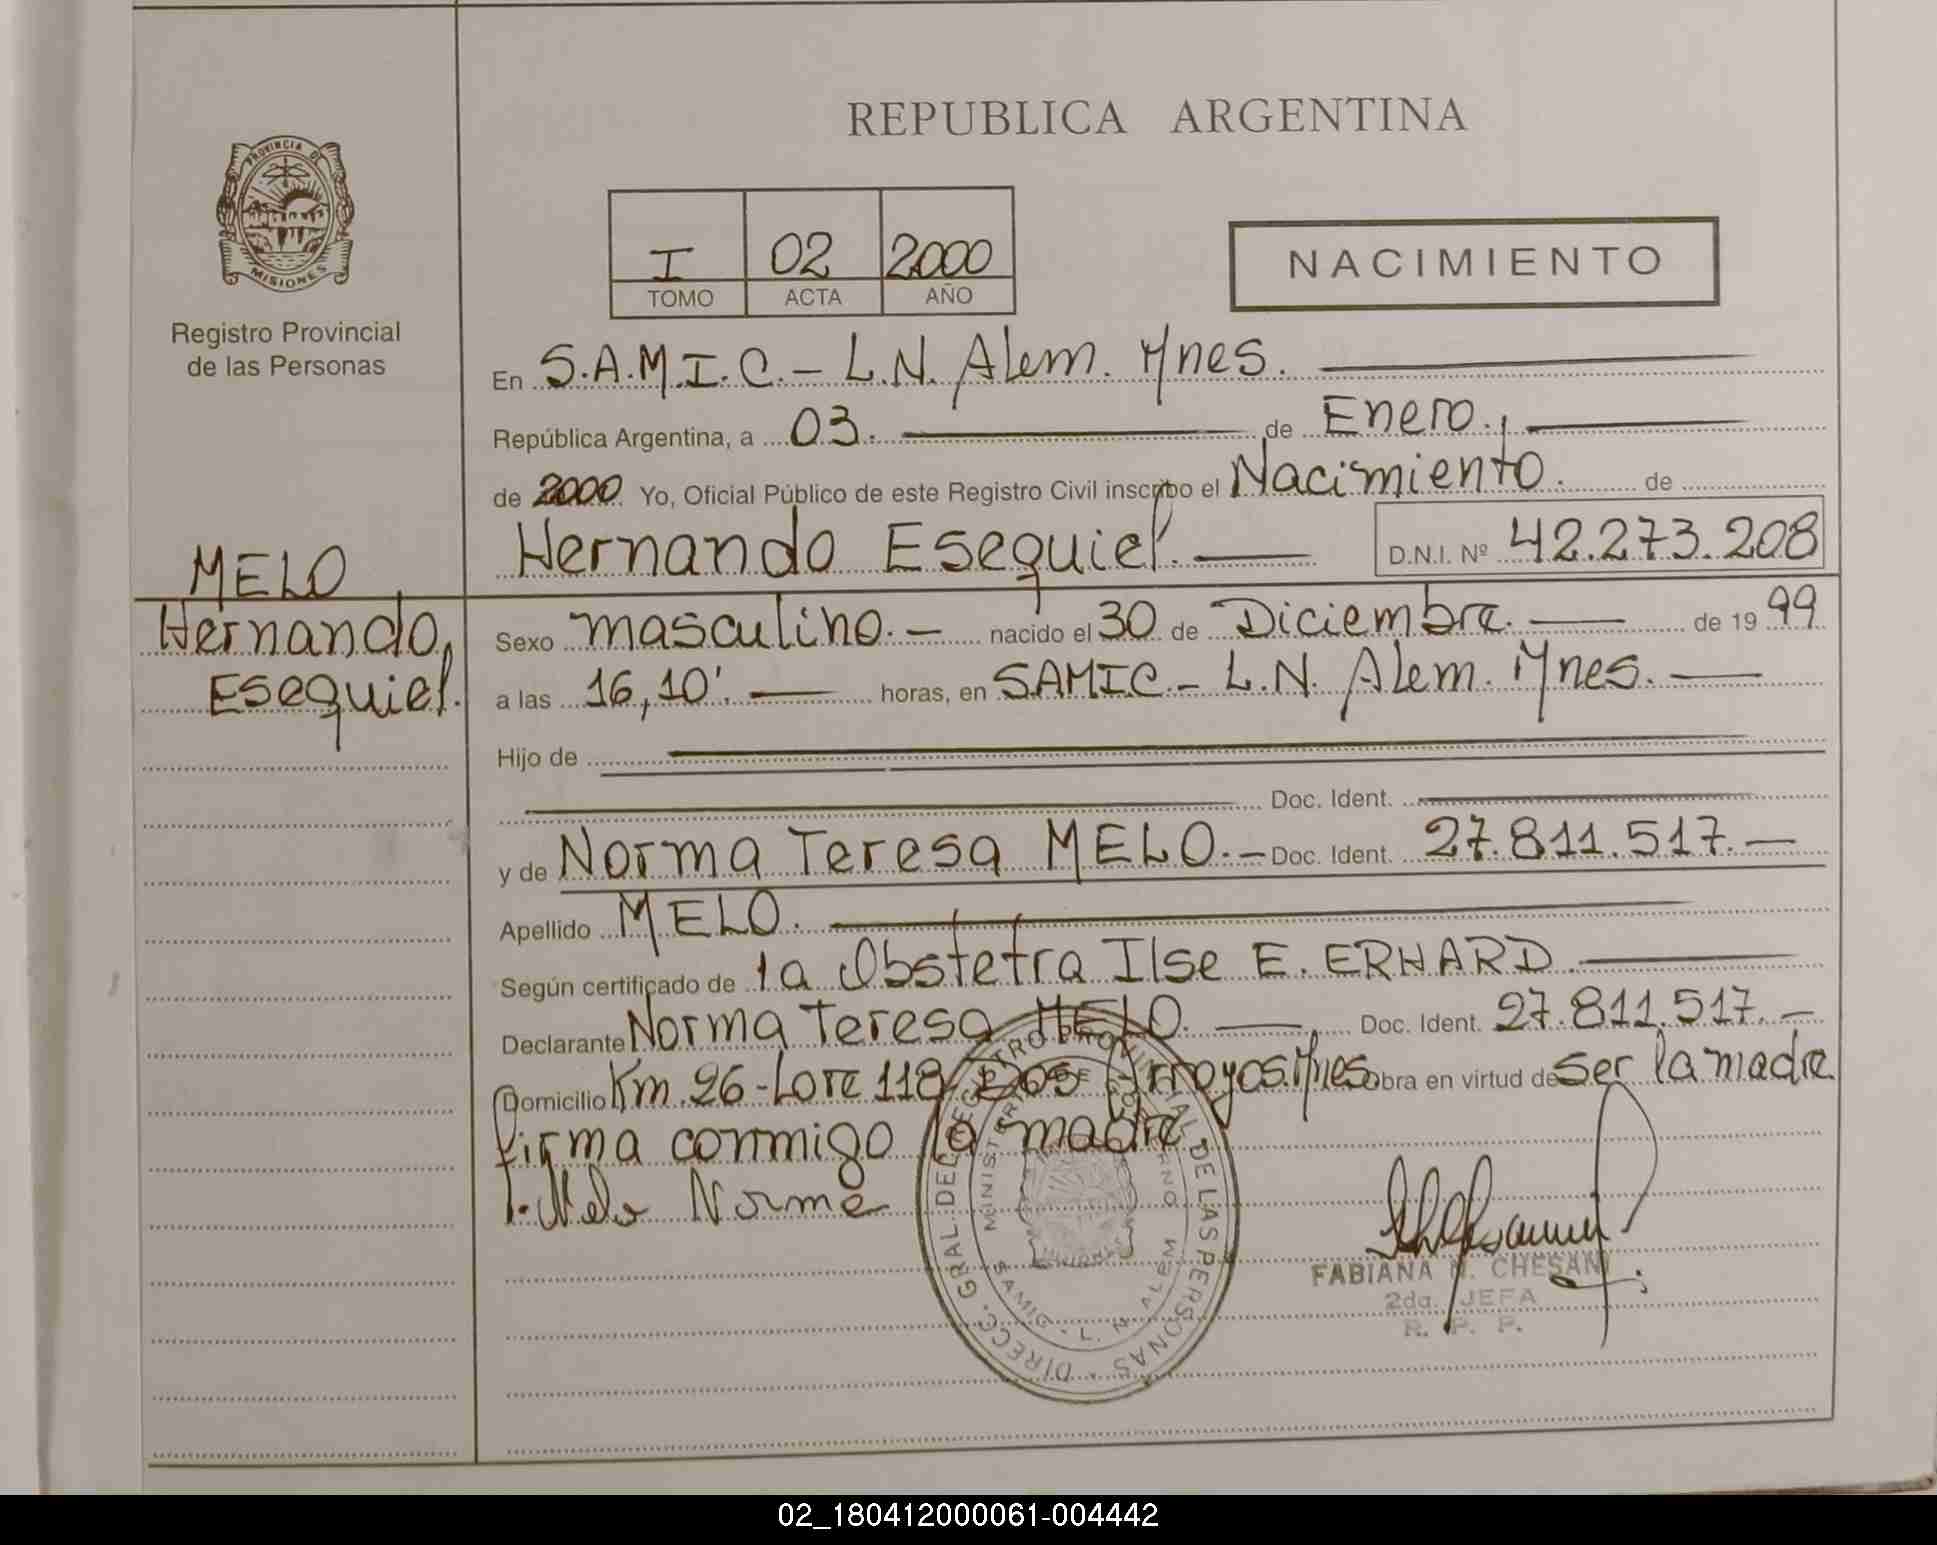 REPUBLICA ARGENTINA
PROVINCIA DE
MISIONES
Registro Provincial
de las Personas
I 02 2000
TOMO ACTA AÑO
NACIMIENTO
En S.A.M.I.C.- L.N. Alem. Mnes.
República Argentina, a 03. de Enero.,
de 2000 Yo, Oficial Público de este Registro Civil inscribo el Nacimiento. de
Hernando Esequiel. D.N.I. Nº 42.273.208
MELO
Hernando,
Esequiel.
Sexo masculino.- nacido el 30 de Diciembre. de 19 99
a las 16,10'. horas, en SAMIC.- L.N. Alem. Mnes.
Hijo de
Doc. Ident.
y de Norma Teresa MELO.- Doc. Ident. 27.811.517.-
Apellido MELO.
Según certificado de la Obstetra Ilse E. ERHARD
Declarante Norma Teresa MELO. Doc. Ident. 27.811.517.-
Domicilio Km. 26 - Lote 118 Dos Arroyos. Mnes obra en virtud de ser la madre
firma conmigo la madre.
Melo Norma
DIRECC. GRAL. DEL REGISTRO PROVINCIAL DE LAS PERSONAS
MINISTERIO DE GOBIERNO
SAMIC - L. N. ALEM
MISIONES
FABIANA N. CHESANI
2da. JEFA
R. P. P.
02_180412000061-004442